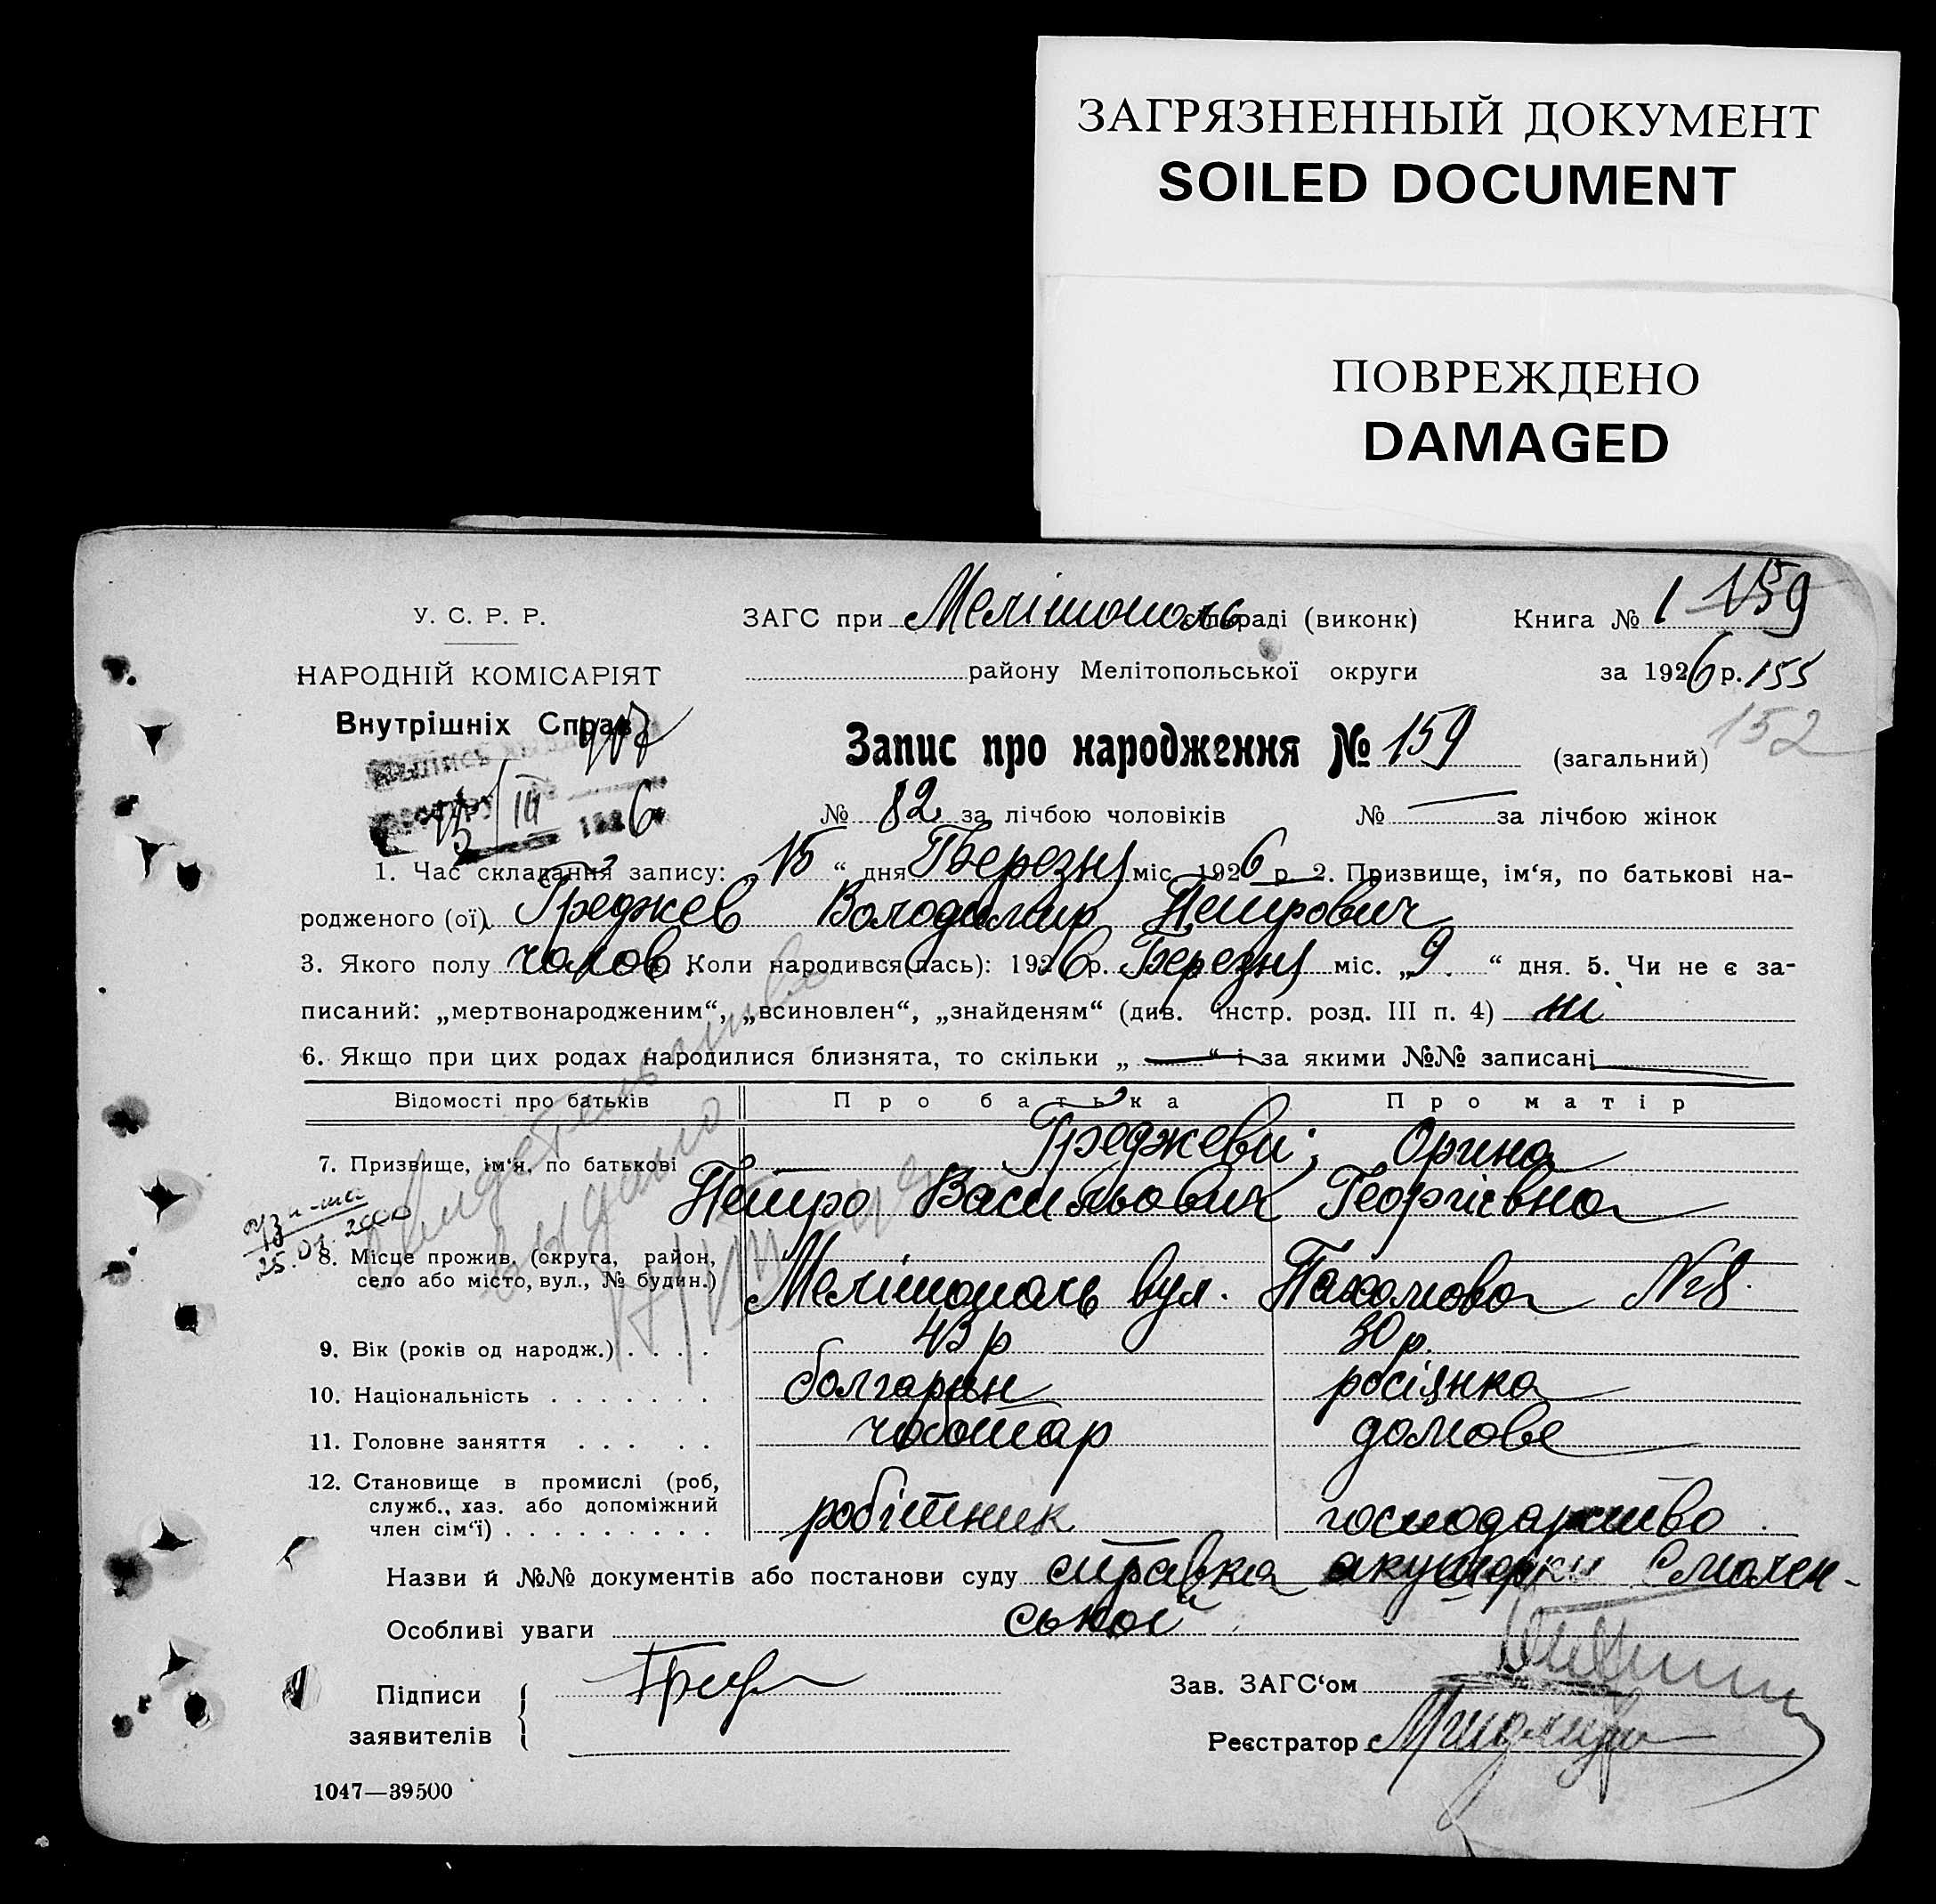 ЗАГРЯЗНЕННЫЙ ДОКУМЕНТ
SOILED DOCUMENT
ПОВРЕЖДЕНО
DAMAGED
У. С. Р. Р.
НАРОДНІЙ КОМІСАРІЯТ
Внутрішніх Справ
ЗАГС при Мелітополь раді (виконк)
району Мелітопольської округи
Книга № 1 159
за 1926 р. 155
152
Запис про народження № 159 (загальний)
№ 82 за лічбою чоловіків № — за лічбою жінок
1. Час складання запису: „15“ дня Березня міс. 1926 р. 2. Призвище, ім'я, по батькові на-
родженого (ої) Греджев Володимир Петрович
3. Якого полу чолов. Коли народився(лась): 1926 р. Березня міс. „9“ дня. 5. Чи не є за-
писаний: „мертвонародженим“, „всиновлен“, „знайденям“ (див. інстр. розд. III п. 4) ні
6. Якщо при цих родах народилися близнята, то скільки „ — “ і за якими №№ записані
Відомості про батьків Про батька Про матір
7. Призвище, ім'я, по батькові Греджеви; Орина
Петро Васильович Георгієвна
25.01.2000
8. Місце прожив. (округа, район,
село або місто, вул., № будин.) Мелітополь вул. Пахомова №8.
9. Вік (років од народж.) . . . . 43 р 30 р.
10. Національність . . . . . . . болгарин росіянка
11. Головне заняття . . . . . чоботар домове
12. Становище в промислі (роб,
служб., хаз. або допоміжний
член сім'ї) . . . . . . . . . робітник господарство
Назви й №№ документів або постанови суду справка акушерки Смолен-
Особливі уваги ської
Підписи
заявителів
Зав. ЗАГС'ом
Реєстратор
1047—39500